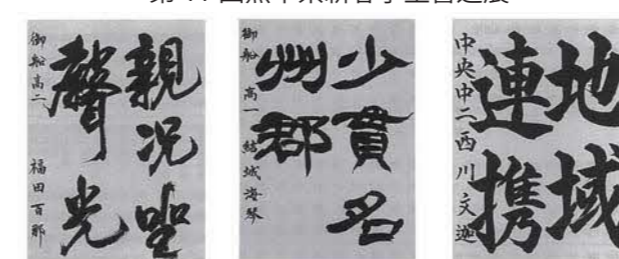 親況聖
聲光
御船高二 福田百那
少貫名
州郡
御船高一 結城海琴
地域
連携
中央中二 西川文遊